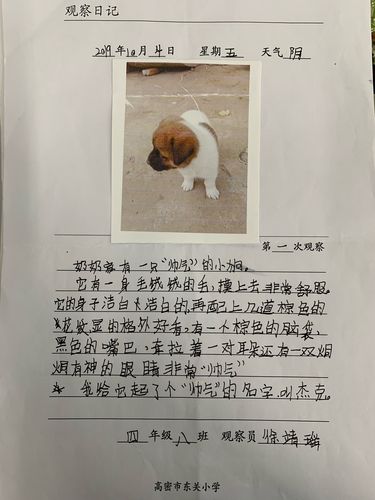 观察日记
2019年10月4日 星期五 天气阴
第一次观察
奶奶家有一只“帅气”的小狗。
它有一身毛绒绒的毛,摸上去非常舒服
它的身子洁白洁白的,再配上几道棕色的
花纹显的格外好看,有一个棕色的脑袋,
黑色的嘴巴,耷拉着一对耳朵还有一双炯
炯有神的眼睛非常“帅气”
我给它起了个“帅气”的名字,叫杰克。
四年级八班 观察员 徐靖
高密市东关小学